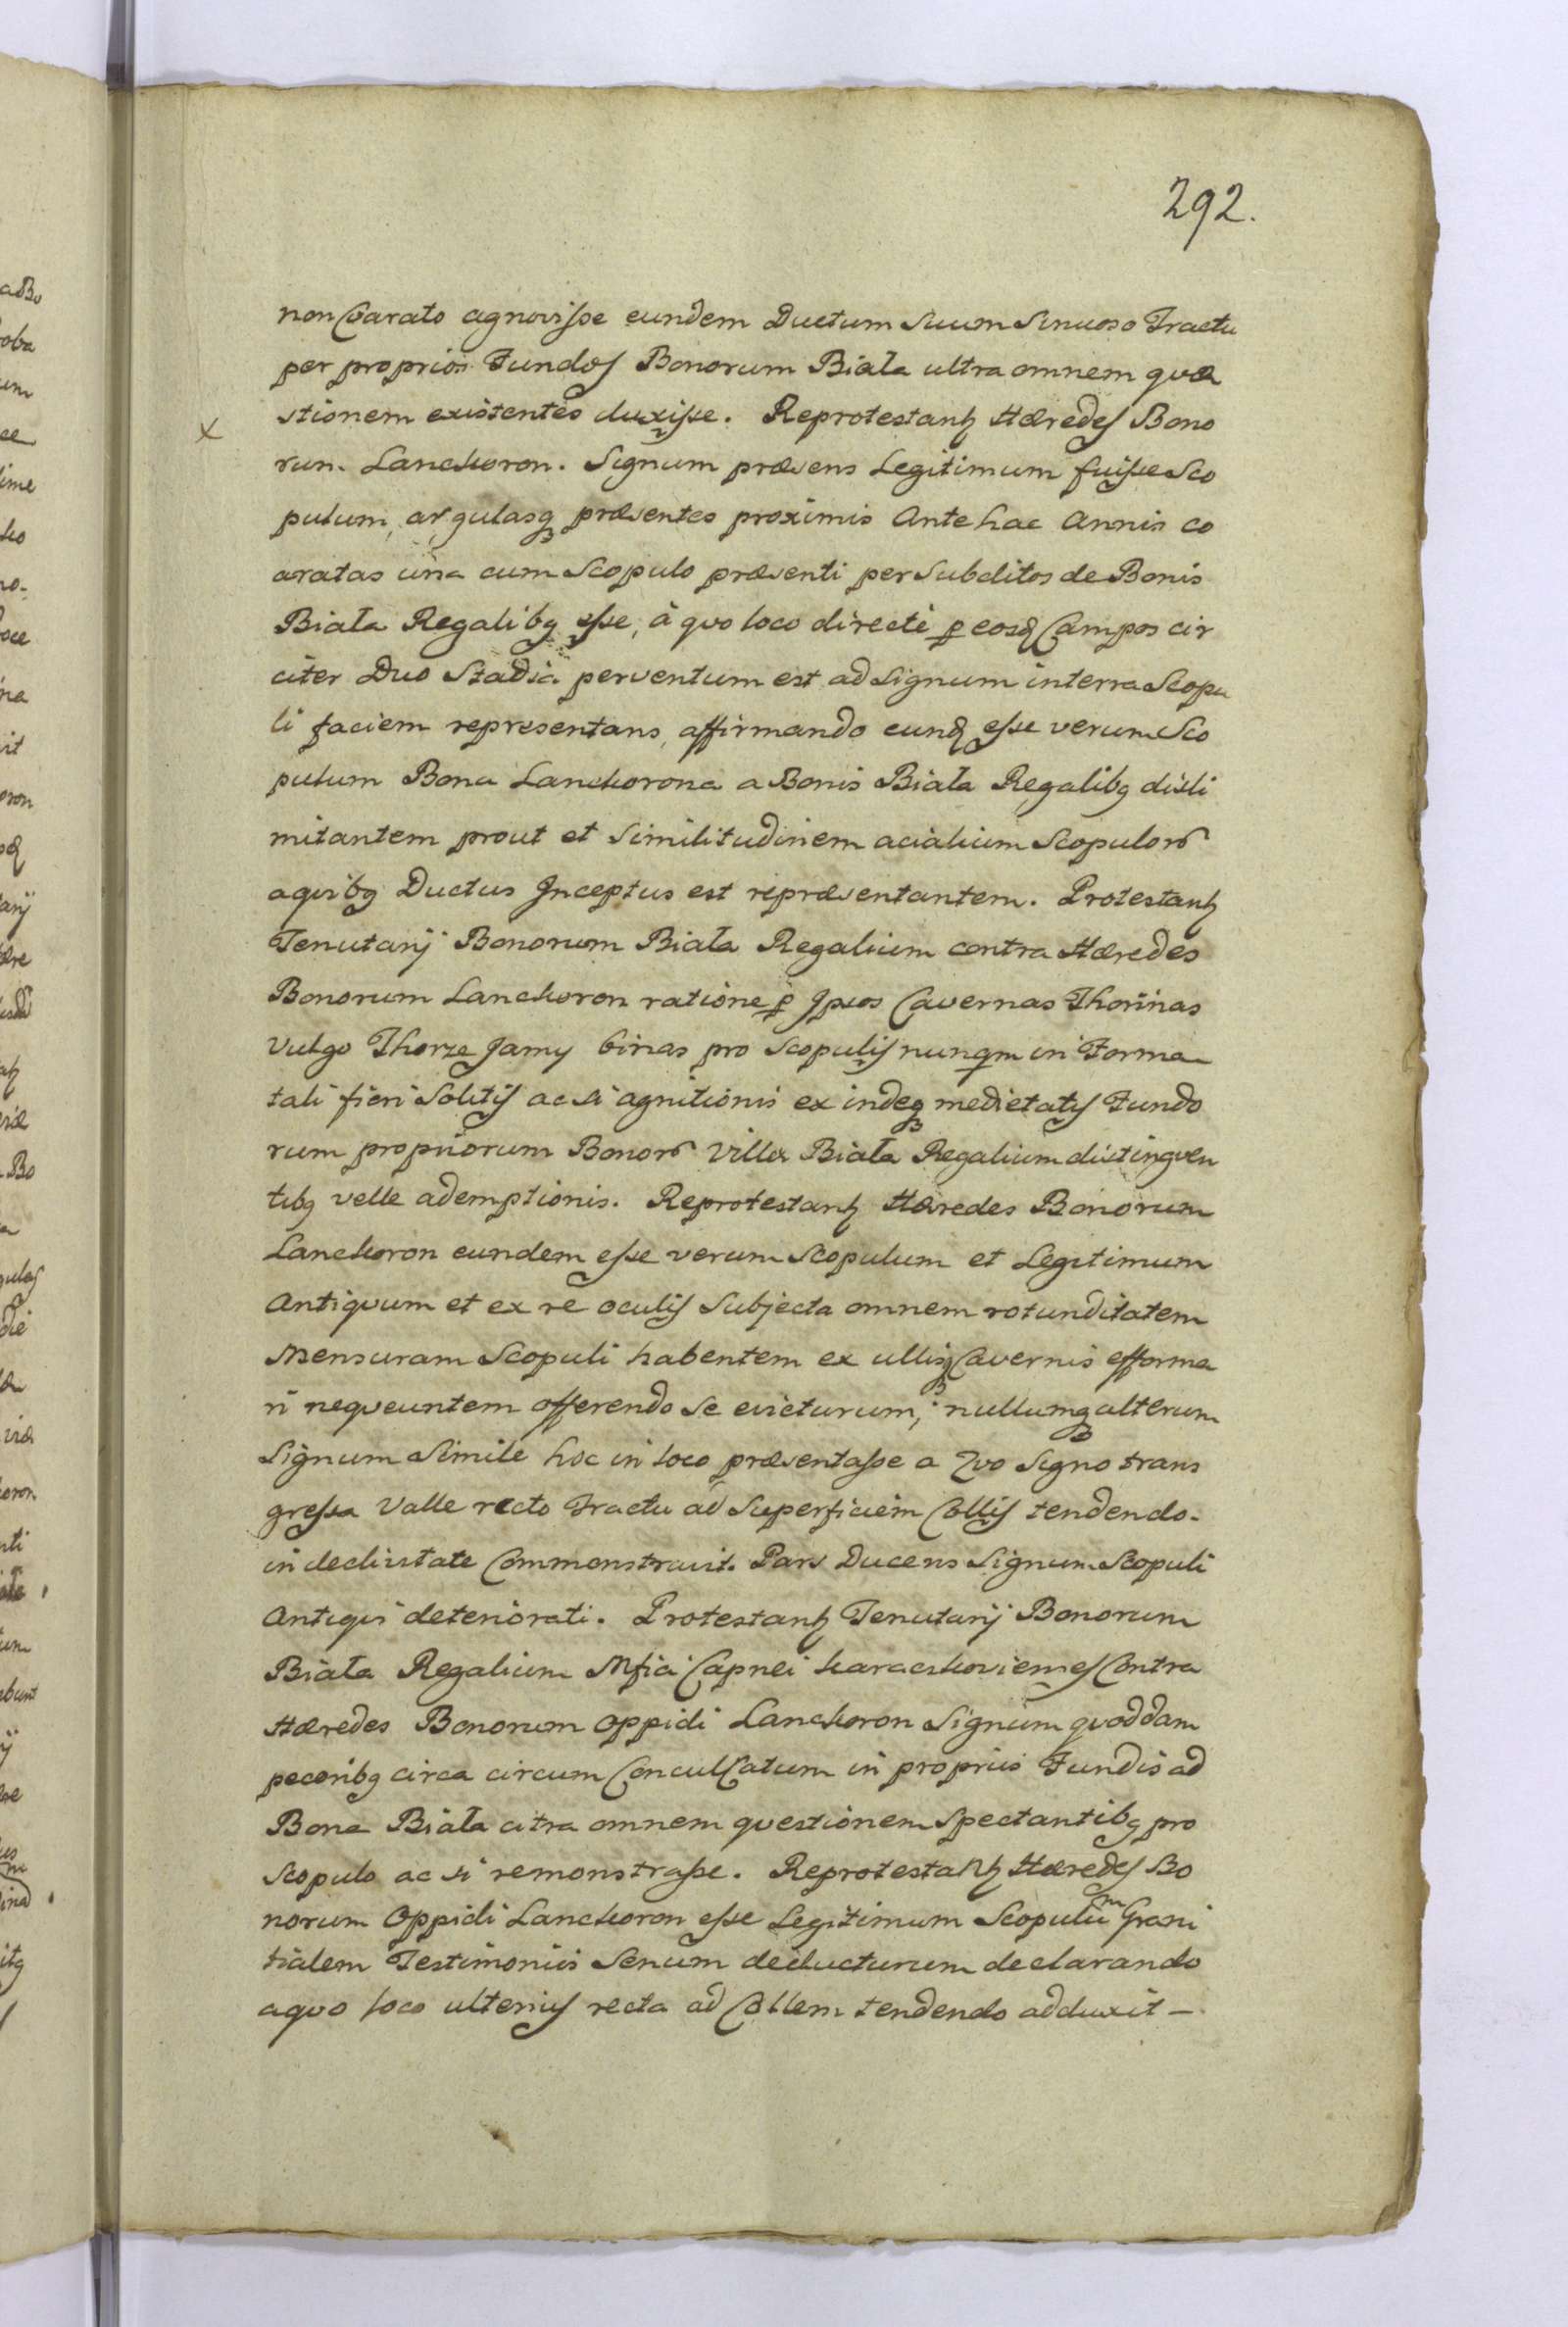 292.
non Coarato agnovisse eundem Ductum Suum Sinuoso Tractu
per proprios Fundos Bonorum Biała ultra omnem quæ
stionem existentes duxisse. Reprotestantz Hæredes Bono
rum Lanckoron. Signum præsens Legitimum fuisse Sco
pulum, argulasq præsentes proximis Ante hac Annis co
aratas una cum Scopulo præsenti per Subditos de Bonis
Biała Regalibq esse, à quo loco directè p eosd Campos cir
citer Duo Stadia perventum est ad Signum in terra Scopu
li faciem representans, affirmando eund esse verum Sco
pulum Bona Lanckorona a Bonis Biała Regalibq disli
mitantem prout et Similitudinem acialium Scopulor
aquibq Ductus Inceptus est repræsentantem. Protestantz
Tenutarij Bonorum Biała Regalium contra Hæredes
Bonorum Lanckoron ratione p Ipsos Cavernas Thorinas
Vulgo Thorze Jamy binas pro Scopulis nunqm in Forma
tali fieri Solitis ac si agnitionis ex indeq medietatis Fundo
rum propriorum Bonor Villæ Biała Regalium distinguen
tibq velle ademptionis. Reprotestantz Hæredes Bonorum
Lanckoron eundem esse verum Scopulum et Legitimum
Antiquum et ex re oculis Subjecta omnem rotunditatem
Mensuram Scopuli habentem ex ullisq Cavernis efforma
ri nequeuntem offerendo Se evicturum, nullumq alterum
Signum Simile hoc in loco præsentasse a Quo Signo trans
gressa Valle recto Tractu ad Superficiem Collis tendendo
in declivitate Commonstravit. Pars Ducens Signum Scopuli
Antiqui deteriorati. Protestantz Tenutarij Bonorum
Biała Regalium Mfici Capnei Contra
Hæredes Bonorum Oppidi Lanckoron Signum quoddam
pecoribq circa circum Conculcatum in propriis Fundis ad
Bona Biała citra omnem questionem Spectantibq pro
Scopulo ac si remonstrasse. Reprotestantz Hæredes Bo
norum Oppidi Lanckoron esse Legitimum Scopulum Grani
tialem Testimoniis Senum deducturum declarando
aquo loco ulterius recta ad Collem tendendo adduxit –